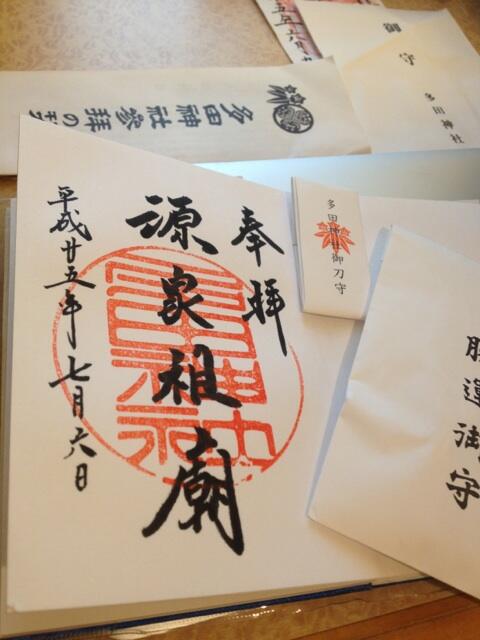 奉拝
源家祖廟
平成廿五年七月六日
多田神社御刀守
勝運御守
多田神社参拝の
御守
多田神社
五年六月